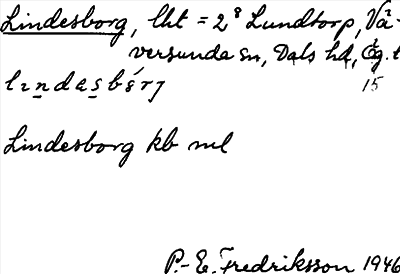 Lindesborg, lht = 2⁸ Lundtorp, Vä-
versunda sn, Dals hd, Ög. l
15
Lindesborg kb ml
P.-E. Fredriksson 1946